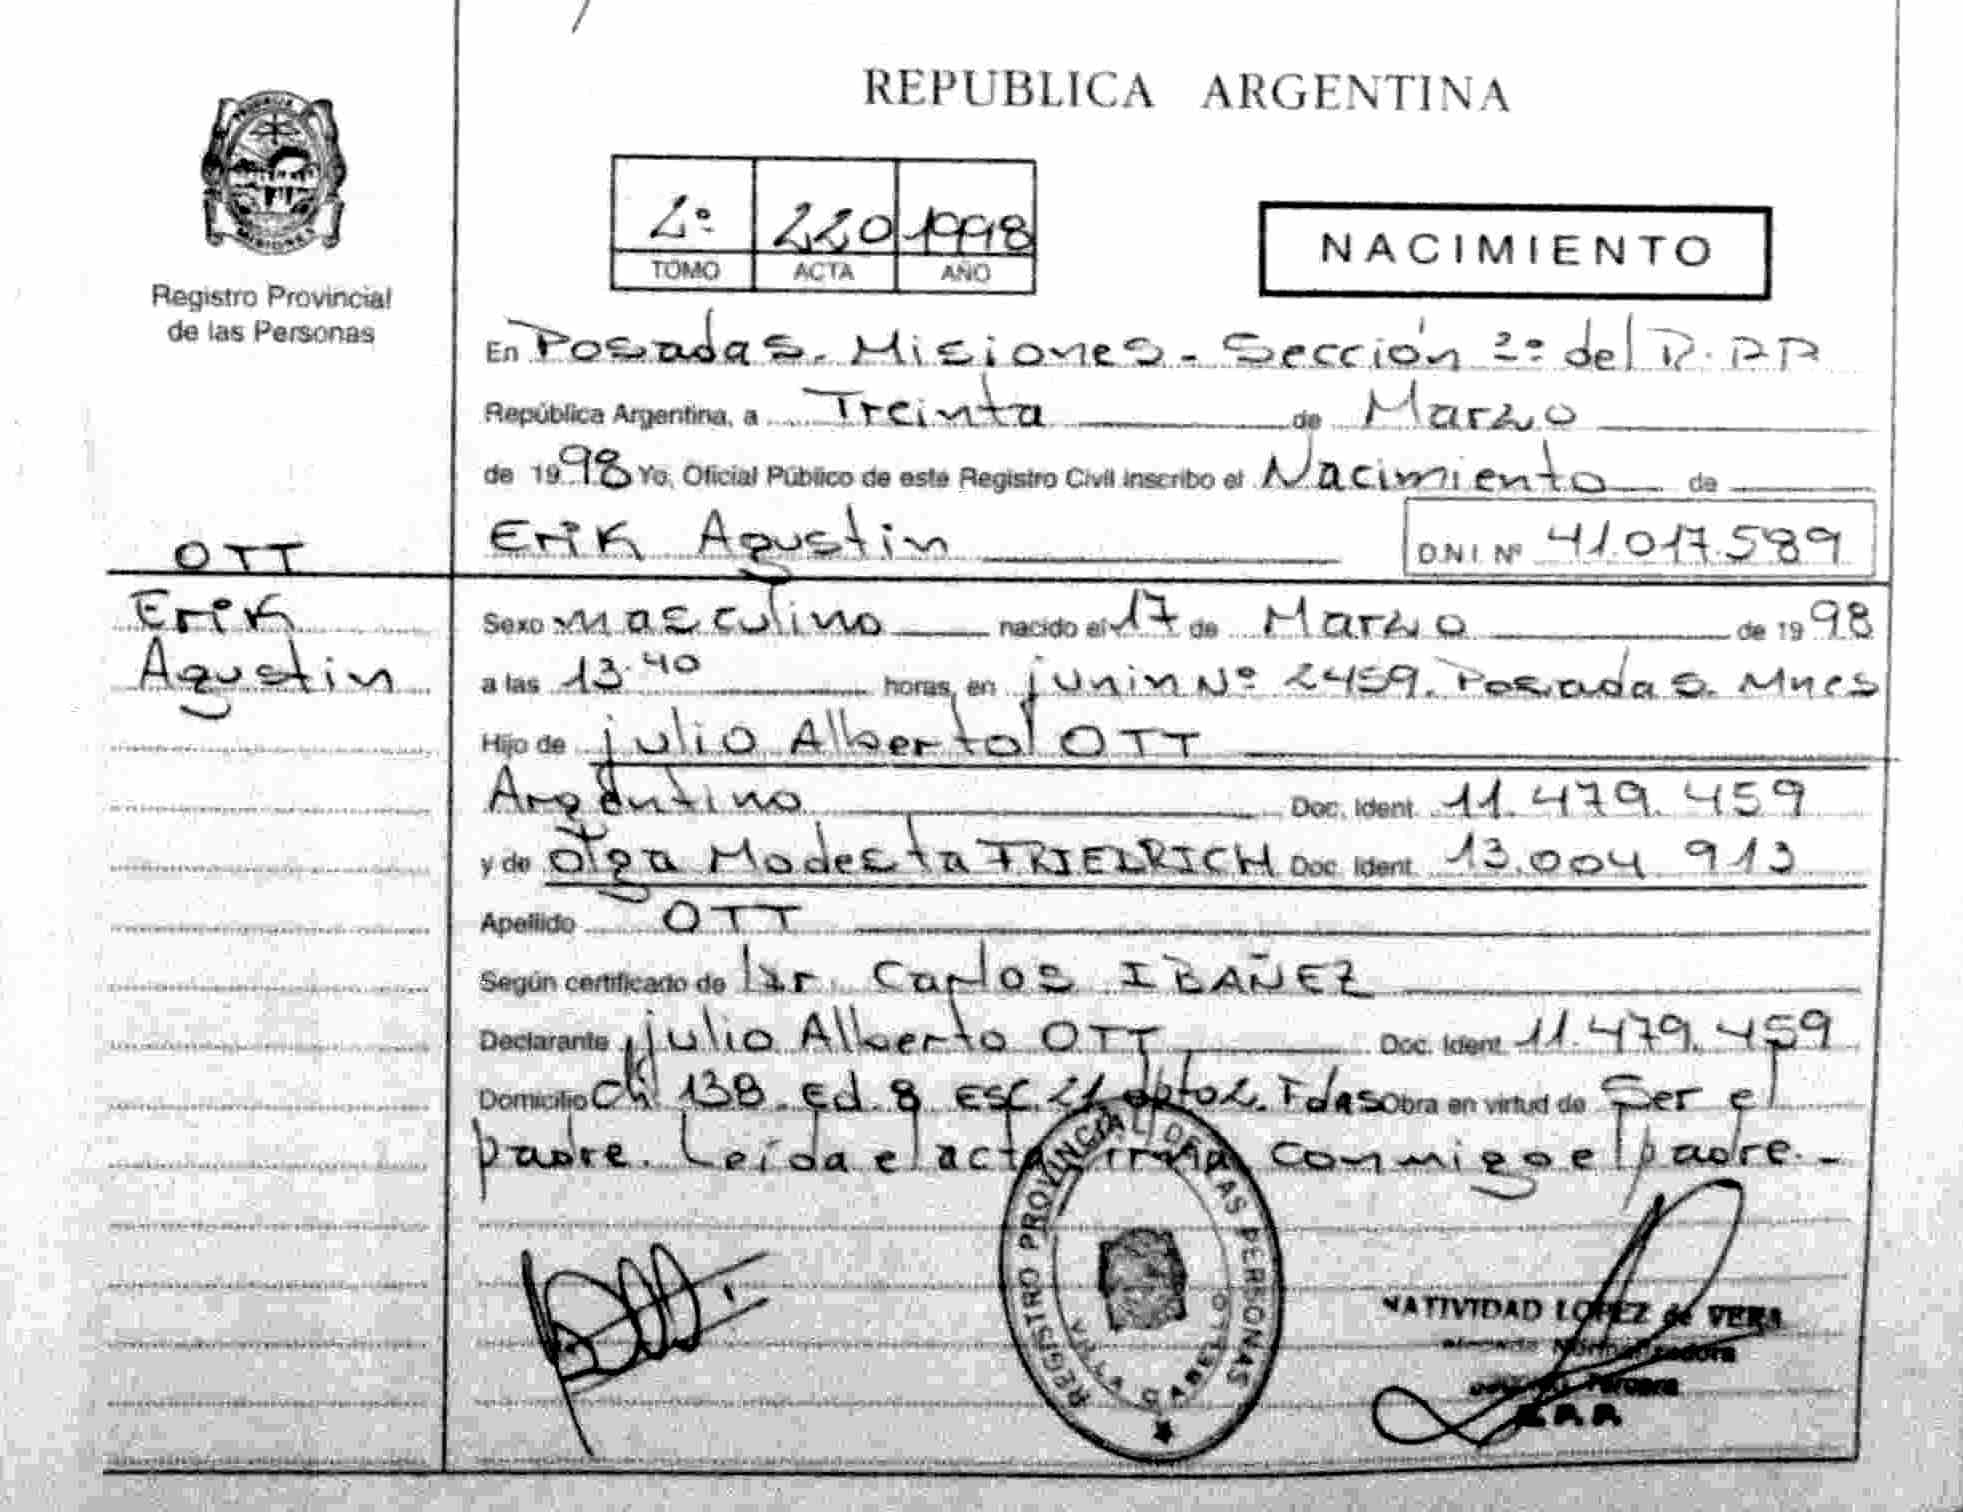 REPUBLICA ARGENTINA
Registro Provincial
de las Personas
2º 220 1998
TOMO ACTA AÑO
NACIMIENTO
En Posadas. Misiones - Sección 2º del R.P.P
República Argentina, a Treinta de Marzo
de 1998 Yo, Oficial Público de este Registro Civil inscribo el Nacimiento de
Erik Agustin D.N.I. Nº 41.017.589
OTT
Erik
Agustin
Sexo masculino nacido el 17 de Marzo de 1998
a las 13.40 horas, en junin Nº 2459. Posadas. Mnes
Hijo de julio Alberto OTT
Argentino Doc. Ident. 11.479.459
y de Olga Modesta FRIEDRICH Doc. Ident. 13.004.913
Apellido OTT
Según certificado de Dr. Carlos IBAÑEZ
Declarante julio Alberto OTT Doc. Ident. 11.479.459
Domicilio Ch 138. Ed. 8 Esc. 21 dpto 2. Pdas Obra en virtud de Ser el
padre. Leída el acta firma conmigo el padre.-
REGISTRO PROVINCIAL DE LAS PERSONAS
VILLA CABELLO
NATIVIDAD LOPEZ de VERA
R.P.P.